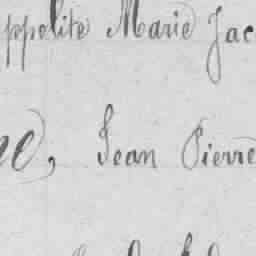 ppolite Marie Jac
e, Jean Pierre